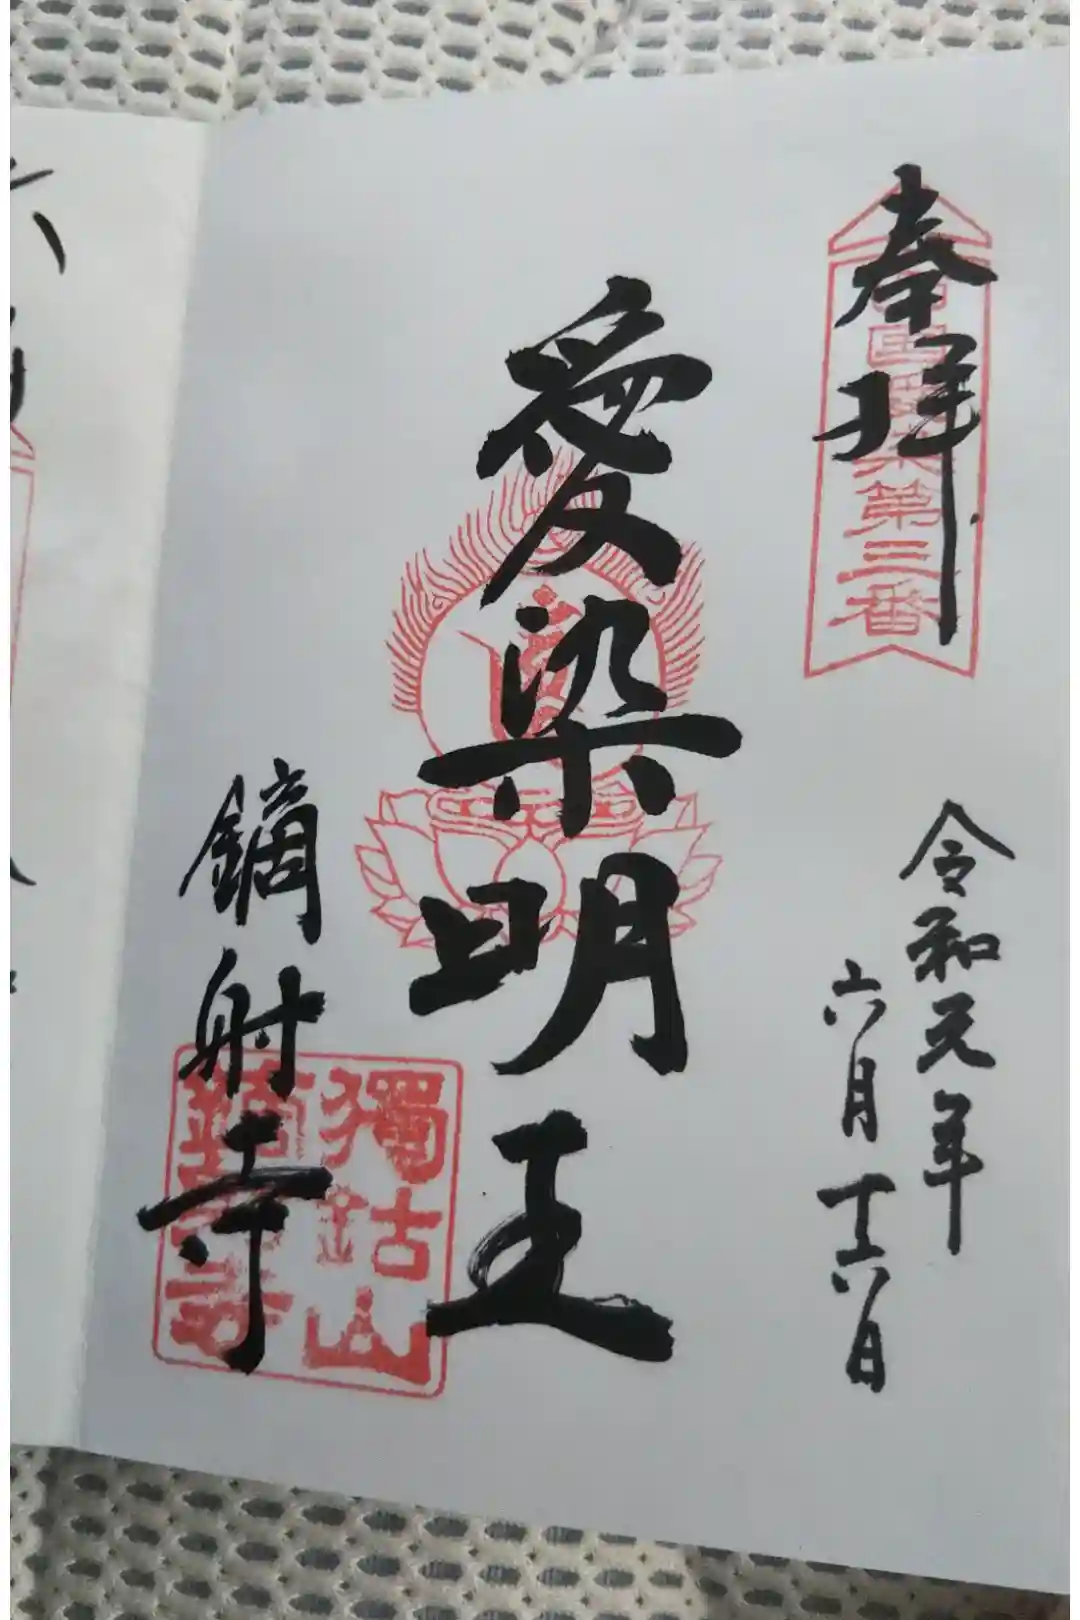 奉拜
第三番
令和元年
六月十六日
愛染明王
鏑射寺
獨鈷山
鏑射寺